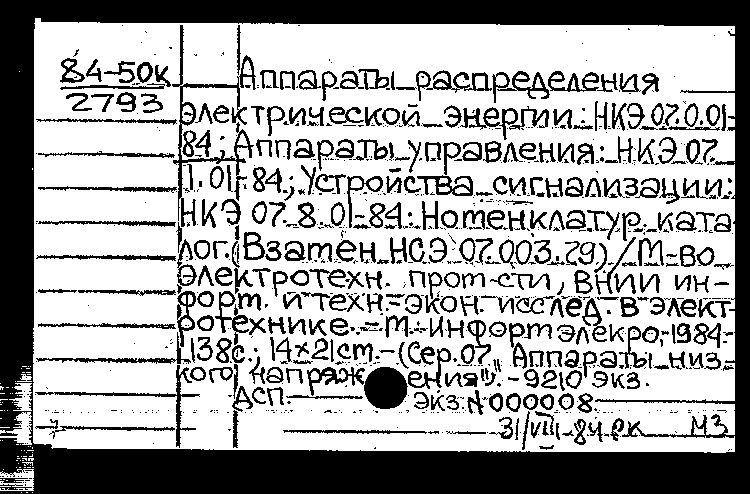 84-50к
2793
Аппараты распределения
электрической энергии: НКЭ 07.0.01-
84; Аппараты управления: НКЭ 07.
1.01-84; Устройства сигнализации:
НКЭ 07.8.01-84: Номенклатур. ката-
лог. (Взамен НСЭ 07.003.79) / М-во
электротехн. пром-сти, ВНИИ ин-
форм. и техн.-экон. исслед. в элект-
ротехнике. - М.: Информэлекро, 1984-
138с.; 14×21 cm. - (Сер. 07 "Аппараты низ-
кого напряжения"). - 9210 экз.
ДСП. Экз. N 000008
31/VIII-84 РК МЗ